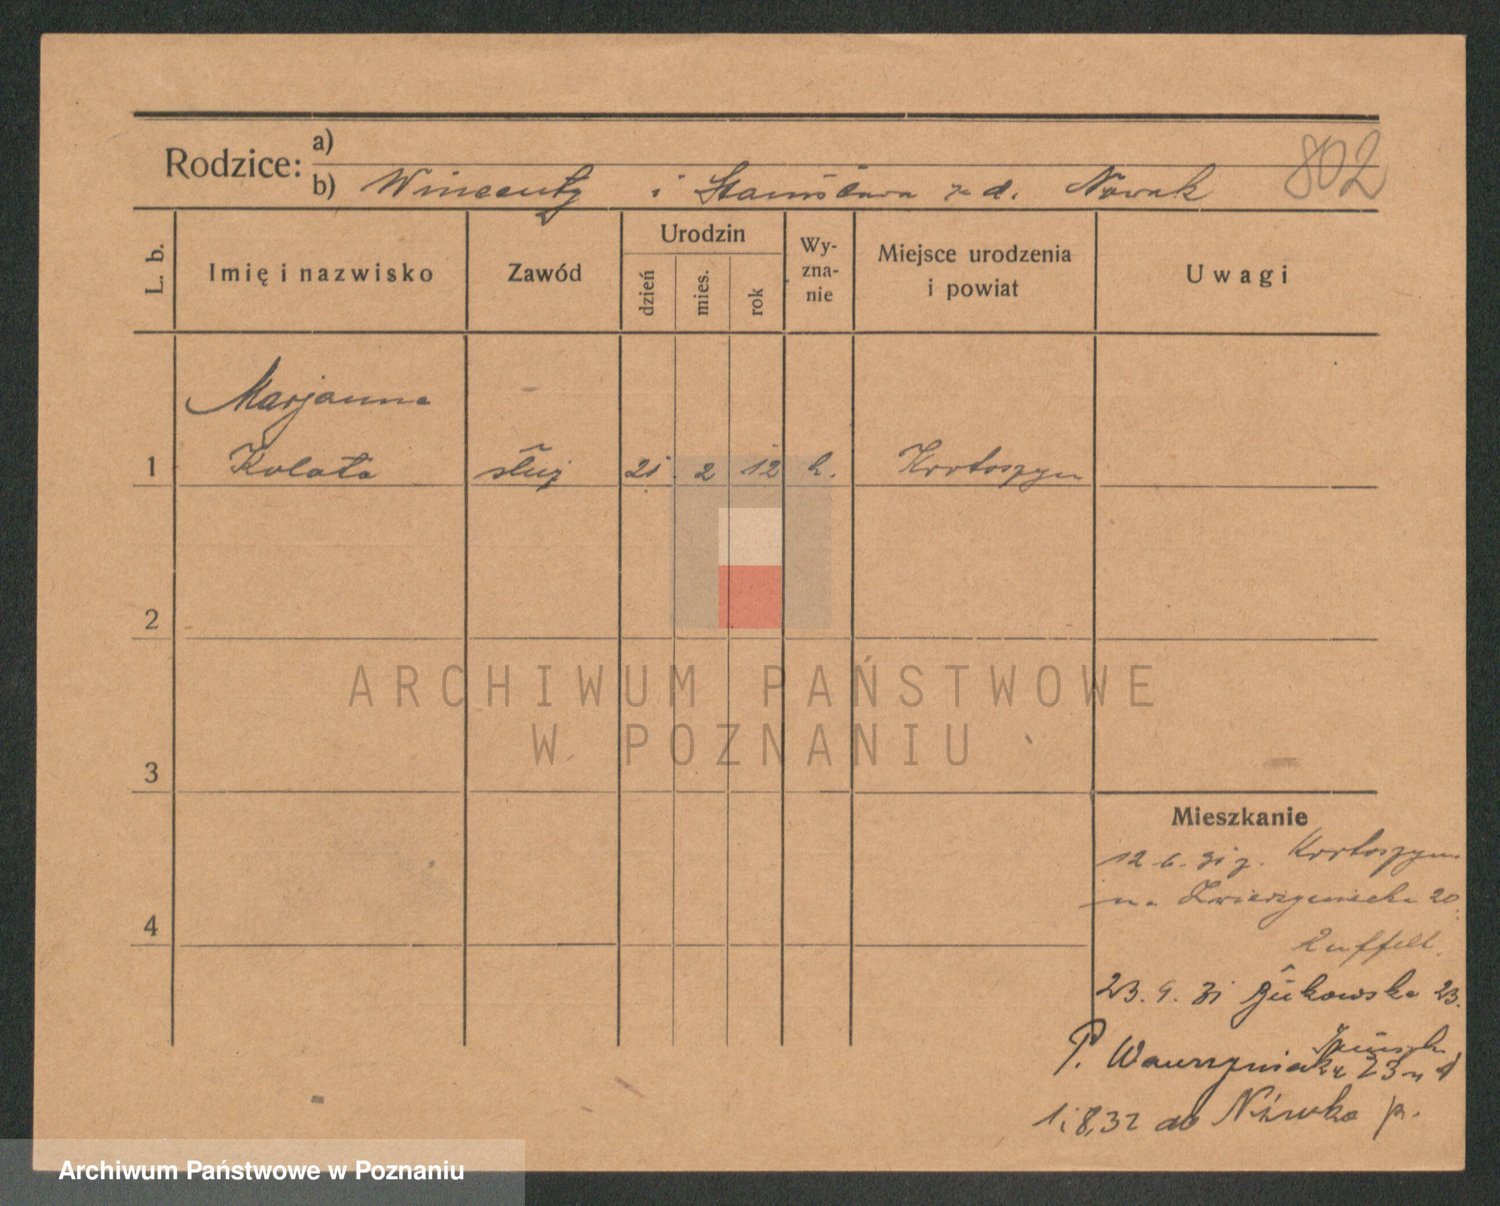 802
Rodzice: a)
b) Wincenty i Stanisława z d. Nowak
L. b.
Imię i nazwisko
Zawód
Urodzin
dzień
mies.
rok
Wy-
zna-
nie
Miejsce urodzenia
i powiat
Uwagi
Marjanna
1 Kolata służ 21. 2 12 k. Krotoszyn
2
ARCHIWUM PAŃSTWOWE
W POZNANIU
3
Mieszkanie
12 6. 31 z. Krotoszyna
na Zwierzyniecka 20
4
23. 9. 31 Bukowska 23.
P. Wawrzyniaka 23
1.8.32 do p.
Archiwum Państwowe w Poznaniu